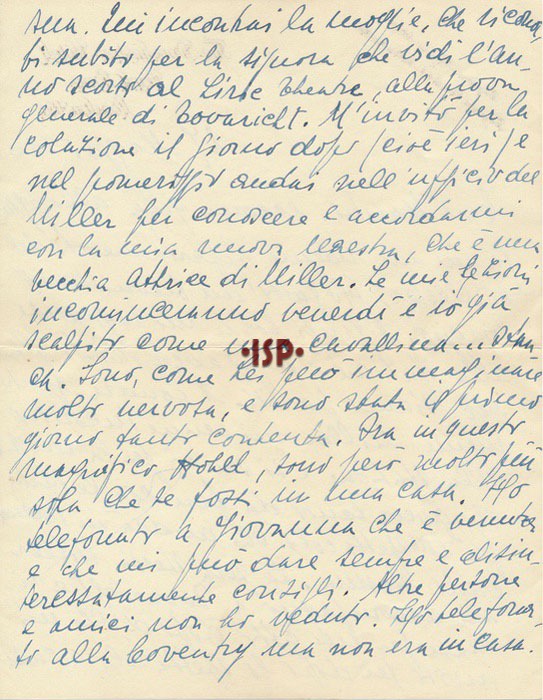 sua. Qui incontrai la moglie, che ricono,
bi subito per la signora che vidi l'an,
no scorso al Liric Theatre, alla prova
generale di Tovaricht. M'invitò per la
colazione il giorno dopo (cioè ieri) e
nel pomeriggio andai nell'ufficio del
Miller per conoscere e accordarmi
con la mia nuova Maestra, che è una
vecchia attrice di Miller. Le mie lezioni
incominceranno venerdì e io già
scalpito come una cavallina... stan
ca. Sono, come Lei può immaginare
molto nervosa, e sono stata il primo
giorno tanto contenta. Ora in questo
magnifico Hotel, sono però molto più
sola che se fossi in una casa. Ho
telefonato a Giovanna che è venuta
e che mi può dare sempre e disin-
teressatamente consigli. Altre persone
e amici non ho veduto. Ho telefona-
to alla Coventry ma non era in casa.
·ISP·